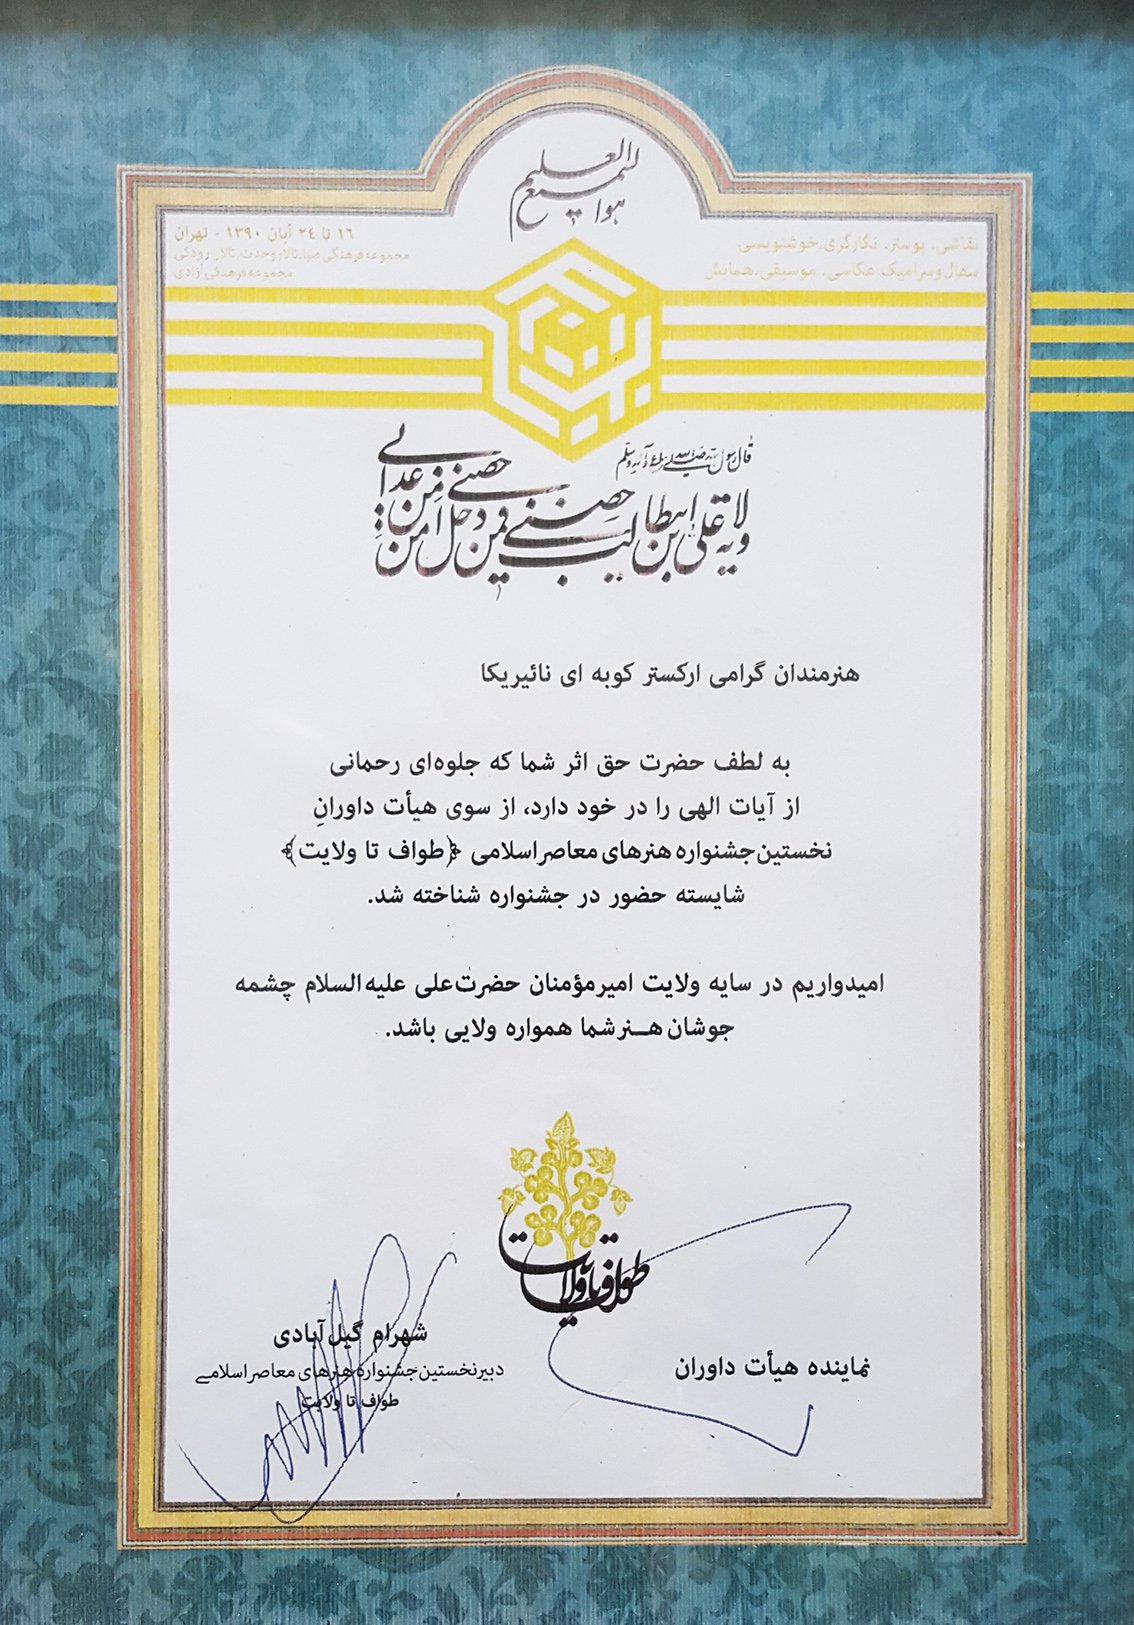 هو السمیع العلیم
نقاشی، پوستر، نگارگری، خوشنویسی
سفال و سرامیک، عکاسی، موسیقی، همایش
۱۶ تا ۲۴ آبان ۱۳۹۰ - تهران
مجموعه فرهنگی صبا، تالار وحدت، تالار رودکی
مجموعه فرهنگی آزادی
قال رسول الله صلی الله علیه و آله وسلم
ولایة علی بن ابیطالب حصنی فمن دخل حصنی امن من عذابی
هنرمندان گرامی ارکستر کوبه ای نائیریکا
به لطف حضرت حق اثر شما که جلوه‌ای رحمانی
از آیات الهی را در خود دارد، از سوی هیأت داورانِ
نخستین جشنواره هنرهای معاصر اسلامی ﴿طواف تا ولایت﴾
شایسته حضور در جشنواره شناخته شد.
امیدواریم در سایه ولایت امیرمؤمنان حضرت علی علیه السلام چشمه
جوشان هنر شما همواره ولایی باشد.
طواف تا ولایت
نماینده هیأت داوران
شهرام گیل‌آبادی
دبیر نخستین جشنواره هنرهای معاصر اسلامی
طواف تا ولایت